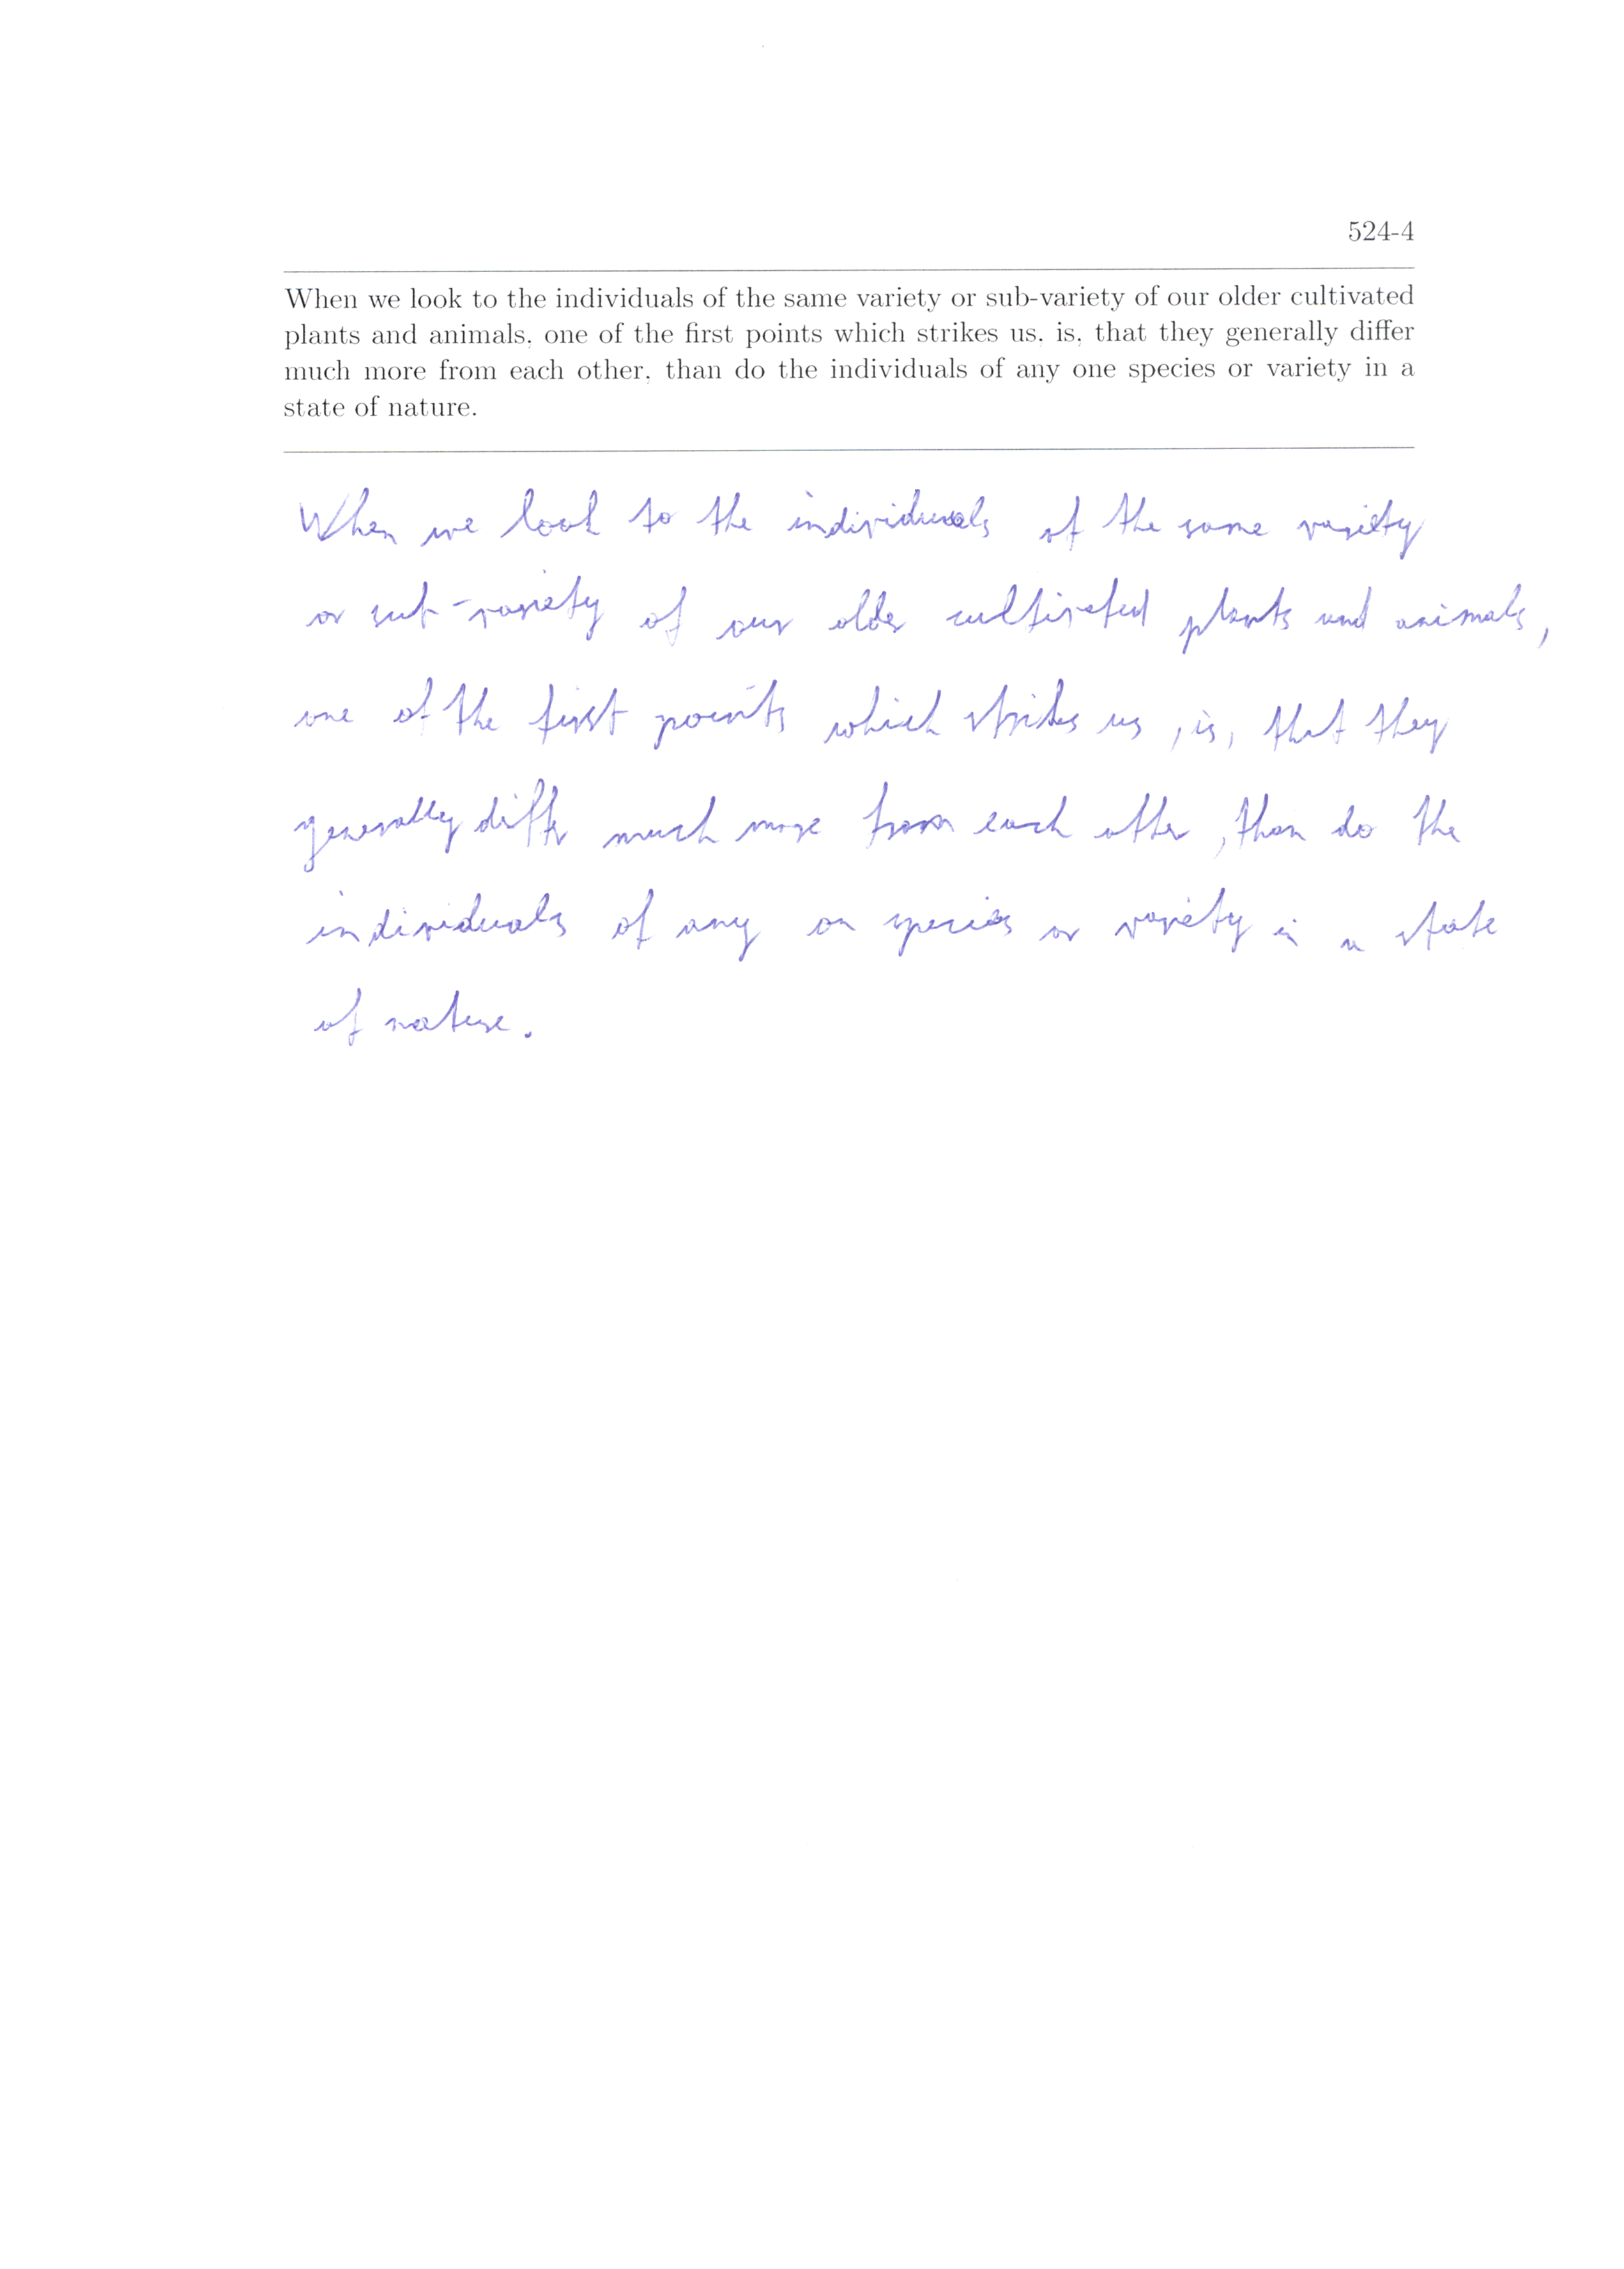 524-4
When we look to the individuals of the same variety or sub-variety of our older cultivated
plants and animals, one of the first points which strikes us, is, that they generally differ
much more from each other, than do the individuals of any one species or variety in a
state of nature.
When we look to the individuals of the same variety
or sub-variety of our older cultivated plants and animals,
one of the first points which strikes us, is, that they
generally differ much more from each other, than do the
individuals of any on species or variety in a state
of nature.